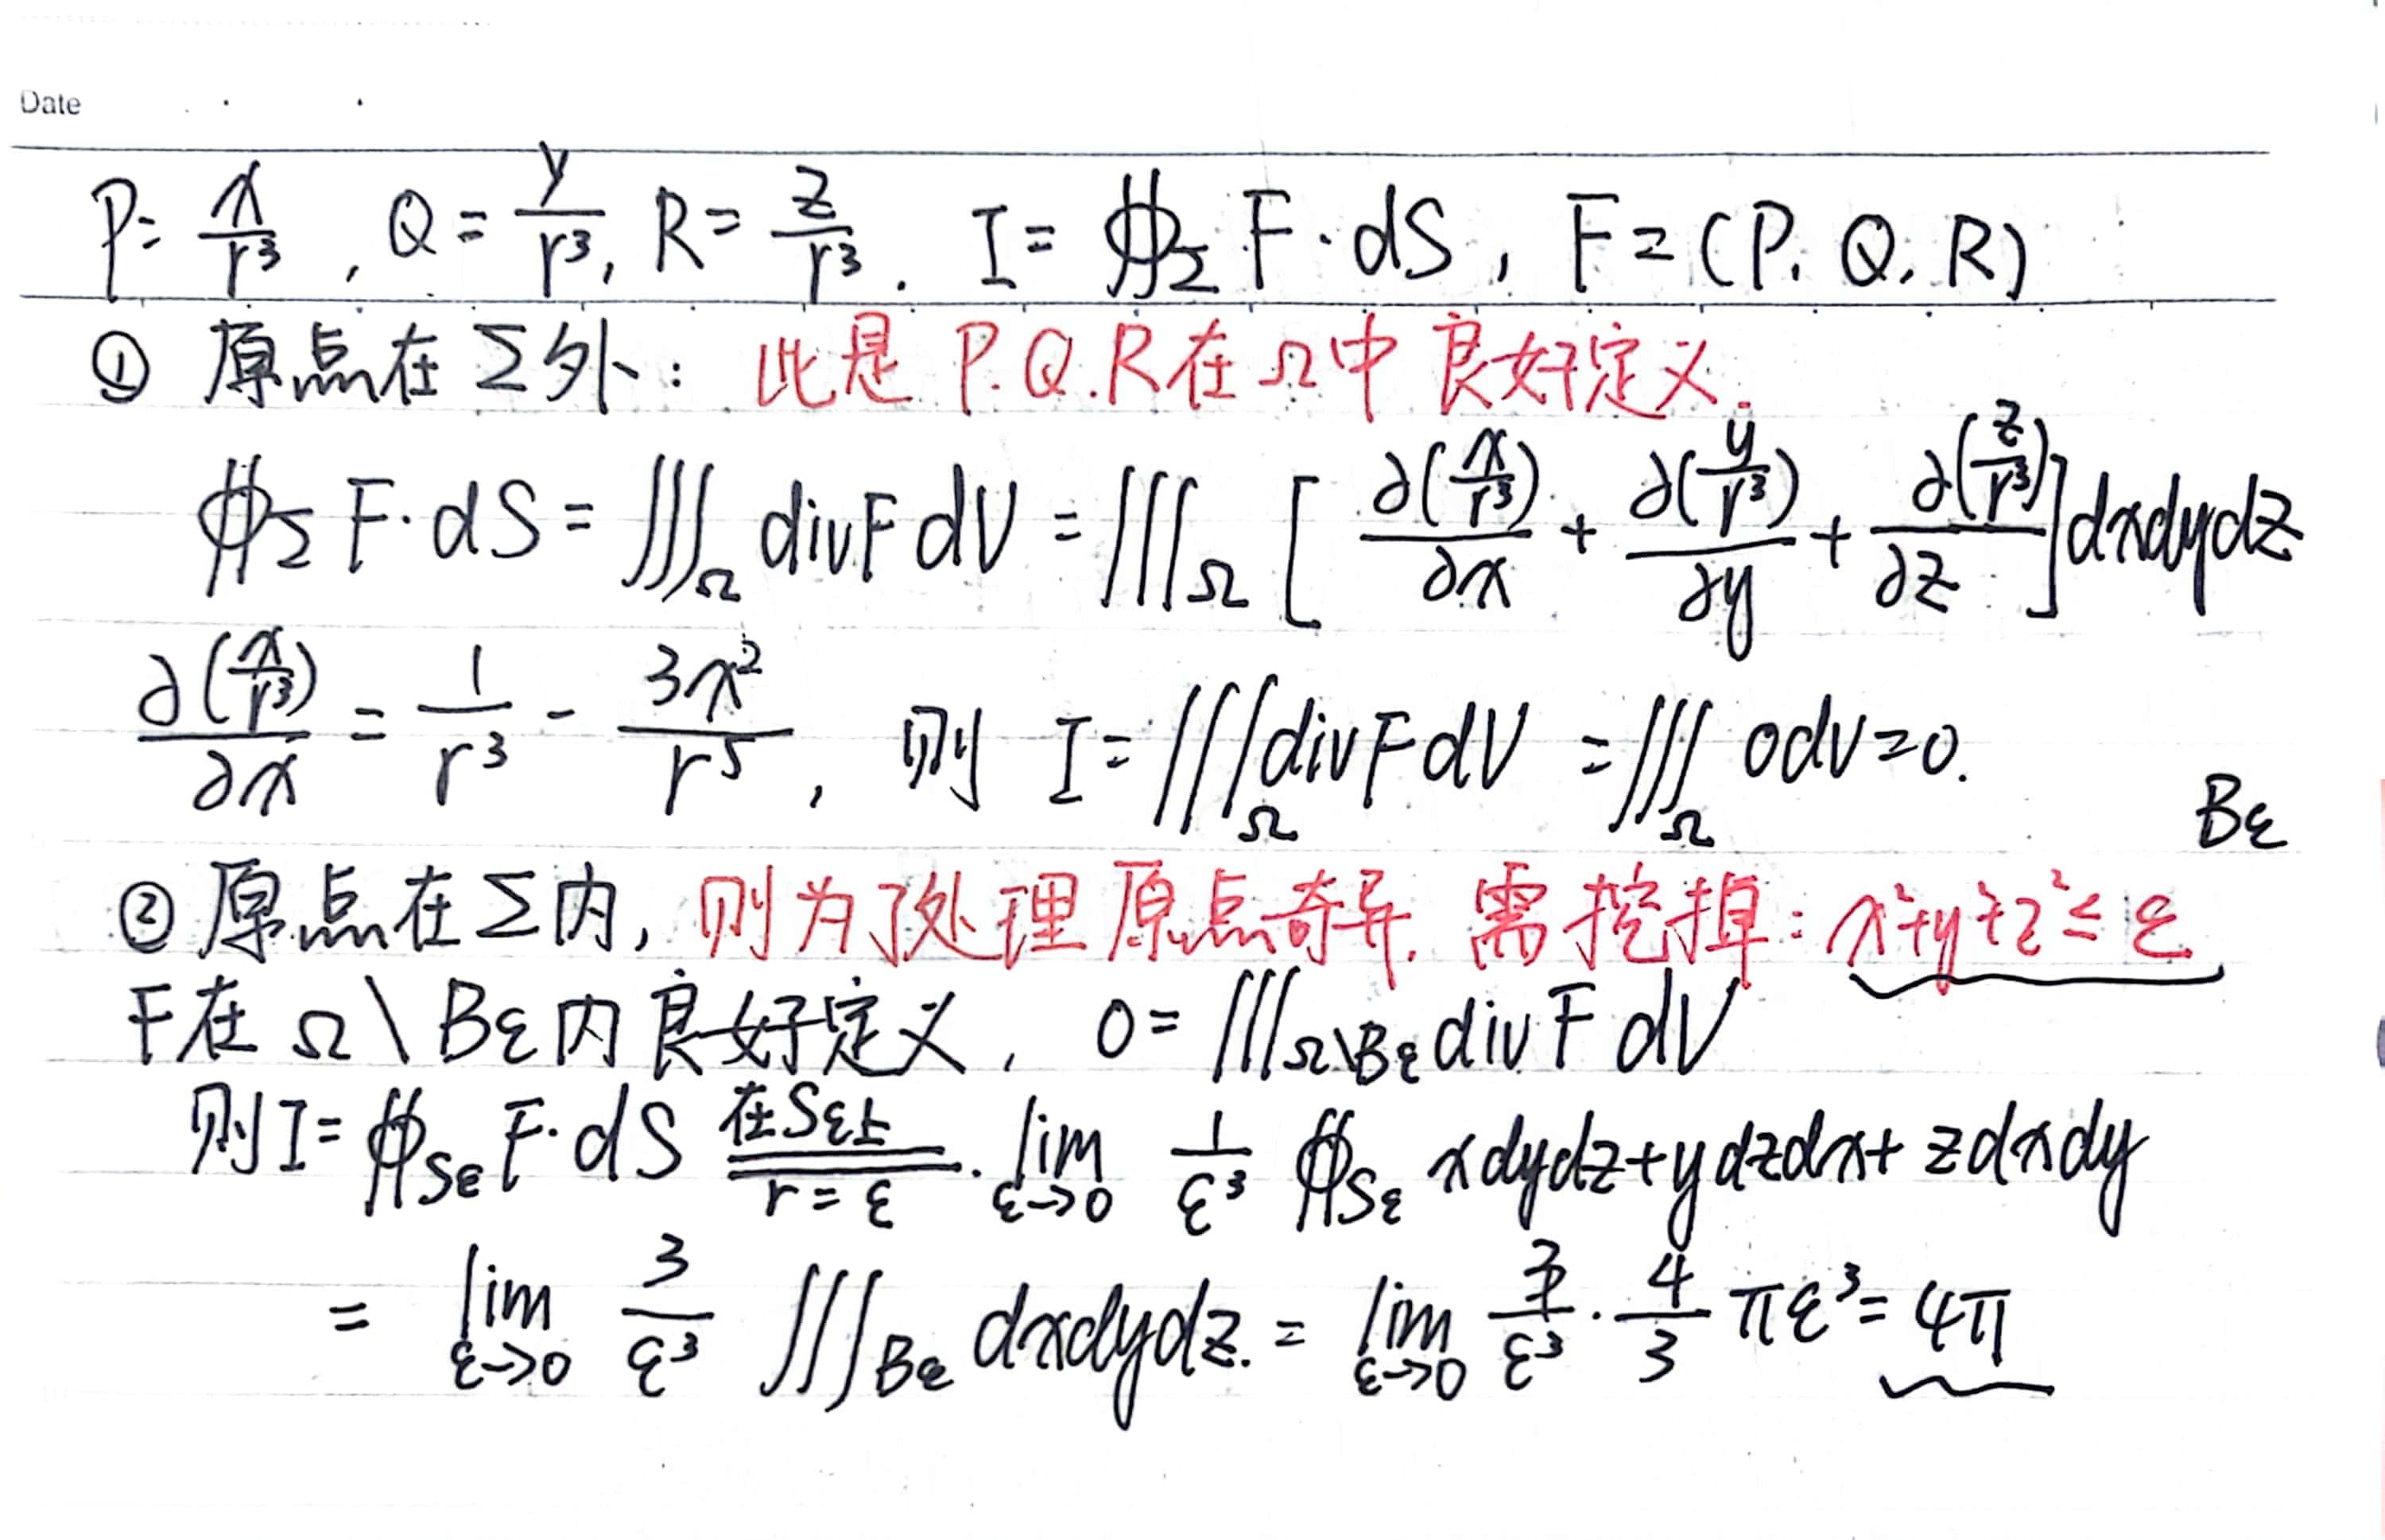 Date
P= x/r³, Q = y/r³, R = z/r³. I = ∯_Σ F·dS, F=(P.Q.R)
① 原点在Σ外: 此是 P.Q.R在Ω中良好定义.
∯_Σ F·dS = ∭_Ω divF dV = ∭_Ω [ ∂(x/r³)/∂x + ∂(y/r³)/∂y + ∂(z/r³)/∂z ] dxdydz
∂(x/r³)/∂x = 1/r³ - 3x²/r⁵, 则 I = ∭_Ω divF dV = ∭_Ω 0dV=0.
Bε
② 原点在Σ内, 则为了处理原点奇异, 需挖掉: x²+y²+z² ≤ ε
F在 Ω\Bε内良好定义, 0 = ∭_Ω\Bε divF dV
则I = ∯_Sε F·dS 在Sε上 r=ε lim ε→0 1/ε³ ∯_Sε xdydz+ydzdx+zdxdy
= lim ε→0 3/ε³ ∭_Bε dxdydz. = lim ε→0 3/ε³ · 4/3 πε³ = 4π